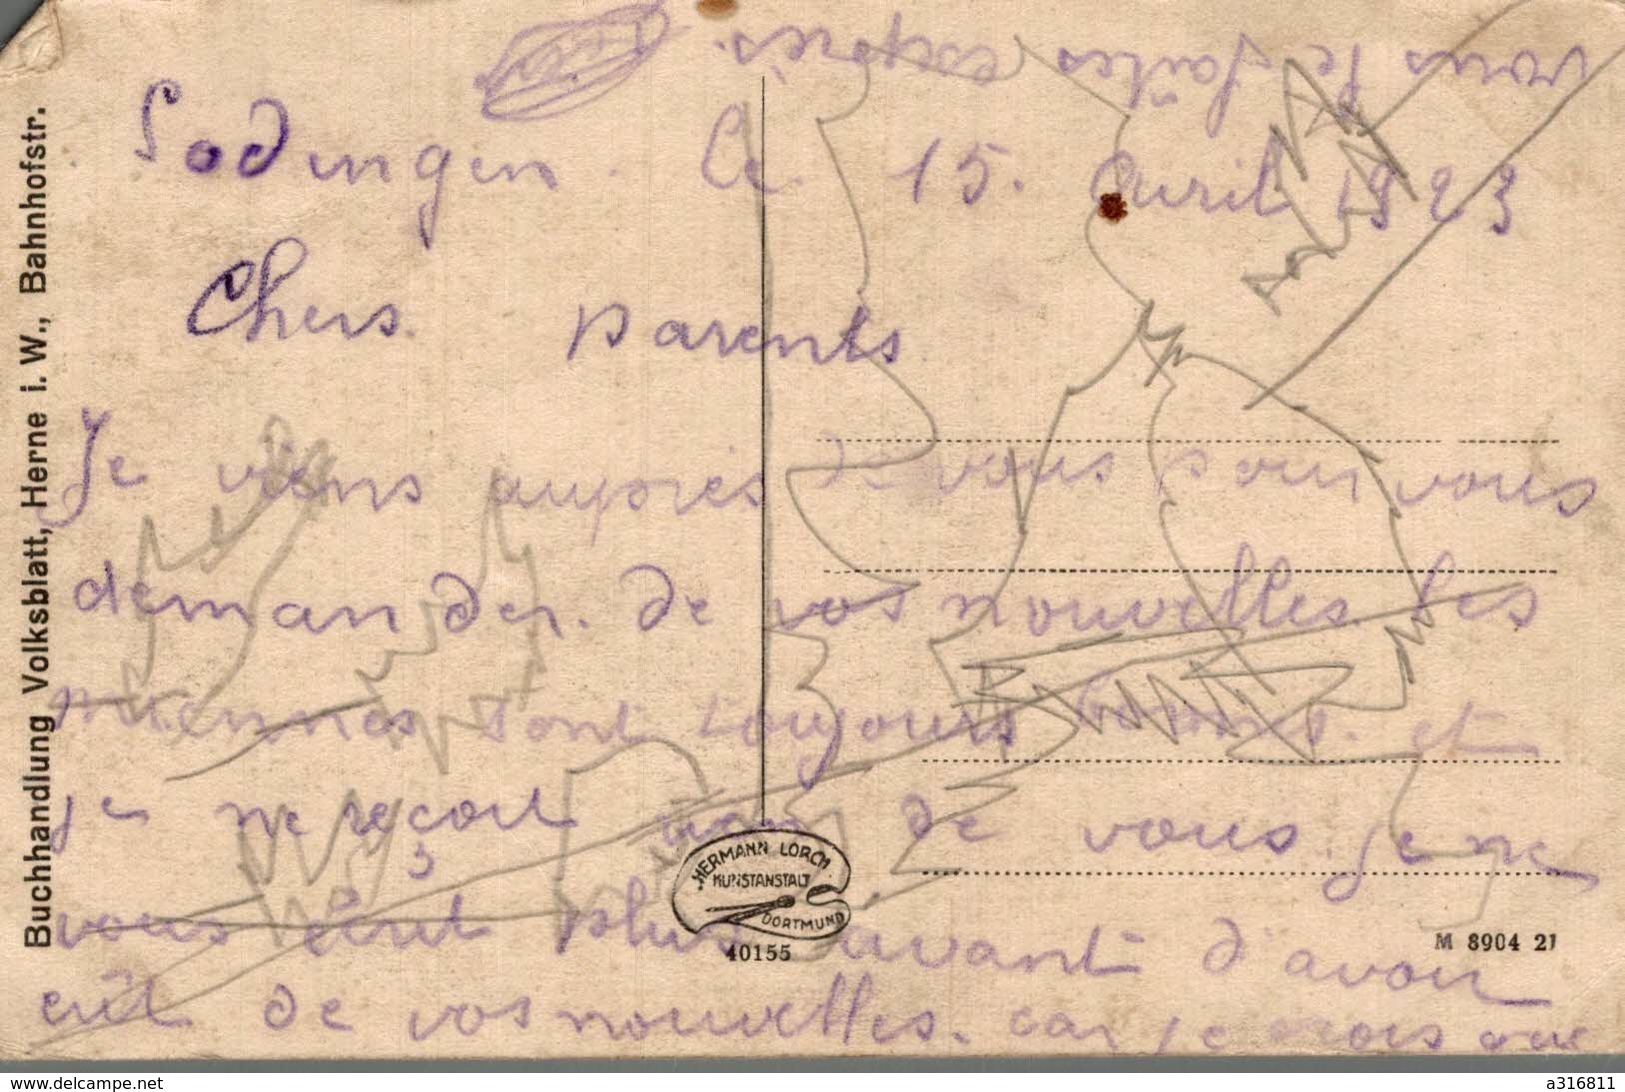 Sodingen. le 15. Avril 1923
Chers parents
Je viens aupres de vous pour vous
demander. de vos nouvelles les
miennes sont toujours bonns. et
je ne reçoit rien de vous. je ne
vous écrit plus avant d'avoir
eût de vos nouvelles. car je crois que
vous le faites exprès.
Buchhandlung Volksblatt, Herne i. W., Bahnhofstr.
HERMANN LORCH
KUNSTANSTALT
DORTMUND
40155
M 8904 21
www.delcampe.net
a316811